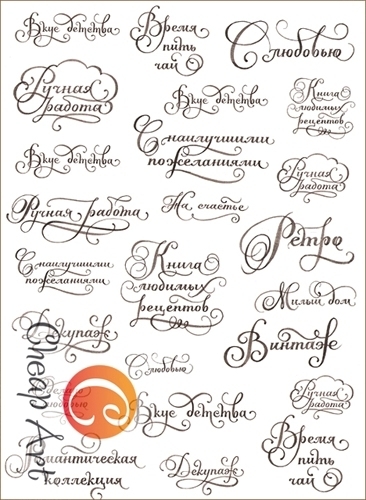 Вкус детства
Время
пить
чай
С любовью
Ручная
работа
Вкус детства
Книга
любимых
рецептов
С наилучшими
пожеланиями
Вкус детства
Ручная
работа
Ручная работа
На счастье
Ретро
С наилучшими
пожеланиями
Книга
любимых
рецептов
Милый дом
Декупаж
Винтаж
С любовью
Ручная
работа
любовью
Вкус детства
Время
пить
чай
Романтическая
коллекция
Декупаж
Cheap Art